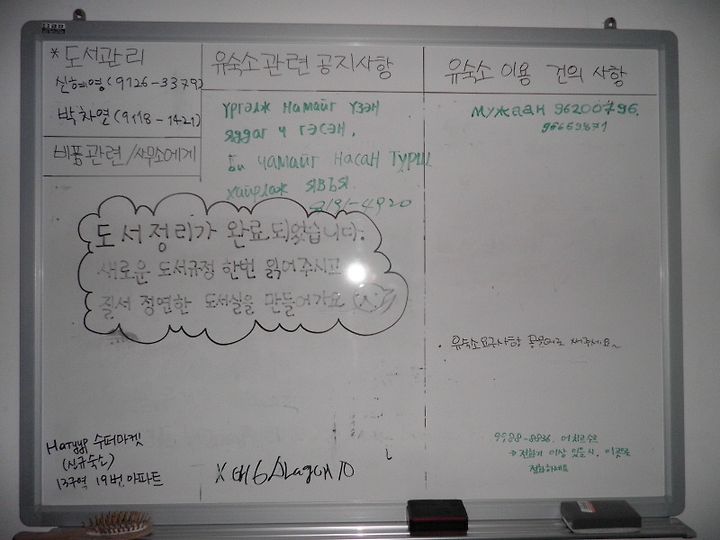 * 도서관리
신혜영 (9126-3379)
박차연 (9118-1421)
비품관련 / 사무소에게
유숙소관련 공지사항
үргэлж намайг үзэн
яддаг ч гэсэн,
Би чамайг насан турш
хайрлаж явъя
9191-4920
유숙소 이용 건의 사항
Мужаан 96200796.
96669871
도서정리가 완료되었습니다.
새로운 도서규정 한번 읽어주시고
질서 정연한 도서실을 만들어가요 (^.^)
· 유숙소요구사항 내주세요~
Натуур 수퍼마켓
(신규숙소)
13구역 19번 아파트
9988-8836.
→ 전화기 이상 있을시, 이곳으로
전화하세요